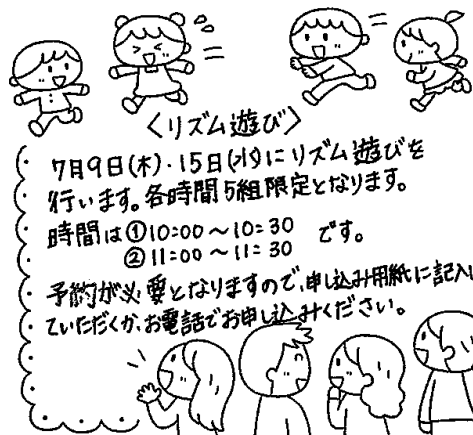 〈リズム遊び〉
7月9日(木)・15日(水)にリズム遊びを
行います。各時間5組限定となります。
時間は①10:00～10:30 です。
②11:00～11:30
予約が必要となりますので、申し込み用紙に記入し
ていただくか、お電話でお申し込みください。